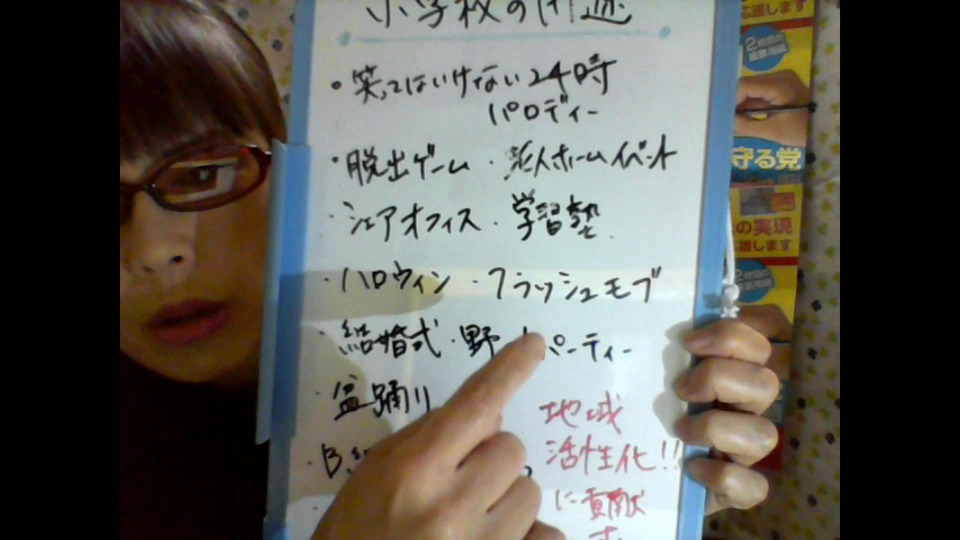 小学校の用途
・笑ってはいけない24時
パロディー
・脱出ゲーム・老人ホームイベント
・シェアオフィス・学習塾
・ハロウィン・フラッシュモブ
・結婚式・野 パーティー
・盆踊り
・B
地域
活性化!!
に貢献
応援します
2枚目の
投票用紙
守る党
の実現
応援します
2枚目の
投票用紙